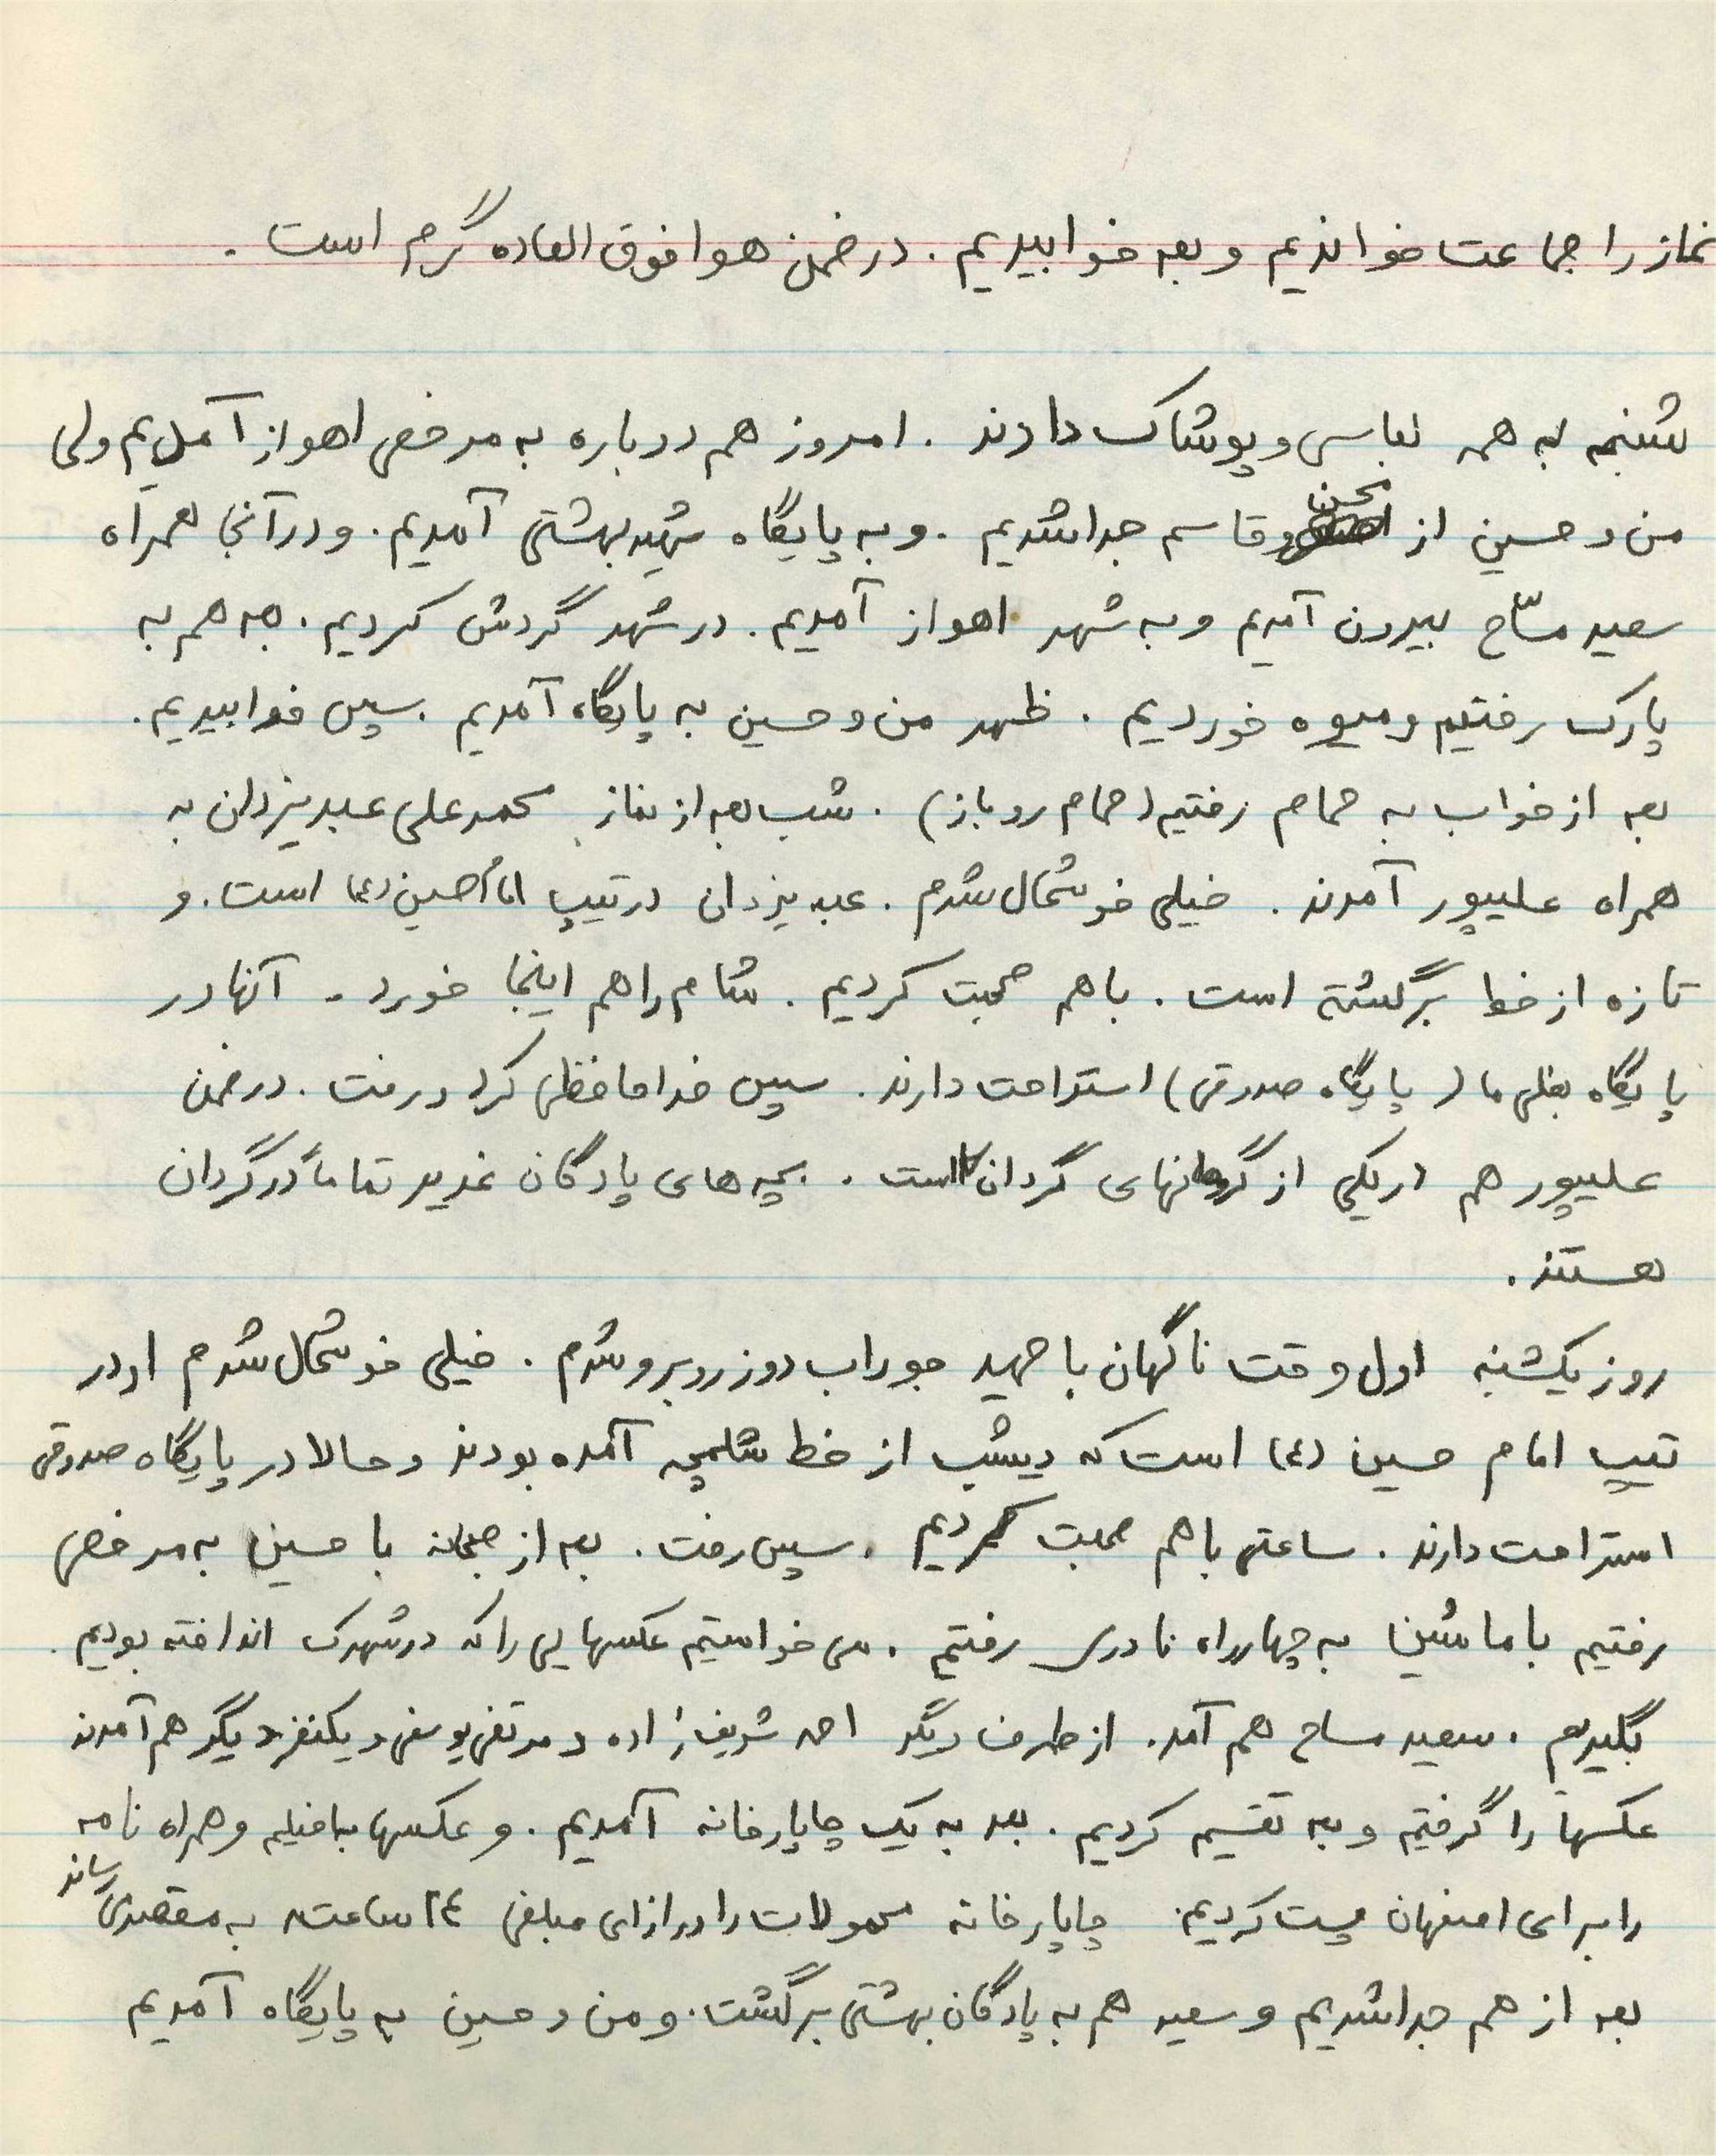 نماز را جماعت خواندیم و بعد خوابیدیم. در ضمن هوا فوق العاده گرم است.
شنبه به همه لباس و پوشاک دادند. امروز هم دوباره به مرخصی اهواز آمدیم ولی
من و حسین از محسن و قاسم جدا شدیم. و به پایگاه شهید بهشتی آمدیم. و در آنجا همراه
سعید مسّاح بیرون آمدیم و به شهر اهواز آمدیم. در شهر گردش کردیم. بعد هم به
پارک رفتیم و میوه خوردیم. ظهر من و حسین به پایگاه آمدیم. سپس خوابیدیم.
بعد از خواب به حمام رفتیم (حمام روباز). شب بعد از نماز محمدعلی عبدیزدان به
همراه علیپور آمدند. خیلی خوشحال شدم. عبدیزدان در تیپ امام حسین (ع) است. و
تازه از خط برگشته است. با هم صحبت کردیم. شام را هم اینجا خورد. آنها در
پایگاه بغلی ما (پایگاه صدوقی) استراحت دارند. سپس خداحافظی کرد و رفت. در ضمن
علیپور هم در یکی از گروهانهای گردان است. بچه های پادگان غدیر تماماً در گردان
هستند.
روز یکشنبه اول وقت ناگهان با حمید جوراب دوز روبرو شدم. خیلی خوشحال شدم او در
تیپ امام حسین (ع) است که دیشب از خط شلمچه آمده بودند و حالا در پایگاه صدوقی
استراحت دارند. ساعتی با هم صحبت کردیم. سپس رفت. بعد از صبحانه با حسین به مرخصی
رفتیم با ماشین به چهارراه نادری رفتیم. می خواستیم عکسهایی را که در شهرک انداخته بودیم.
بگیریم. سعید مساح هم آمد. از طرف دیگر احمد شریف زاده و مرتضی یوسفی و یکنفر دیگر هم آمدند
عکسها را گرفتیم و بعد تقسیم کردیم. بعد به یک چاپارخانه آمدیم. و عکسها با فیلم و همراه نامه
را برای اصفهان پست کردیم. چاپارخانه محمولات را در ازای مبلغی ۲۴ ساعته به مقصد می رساند
بعد از هم جدا شدیم و سعید هم به پادگان بهشتی برگشت. و من و حسین به پایگاه آمدیم